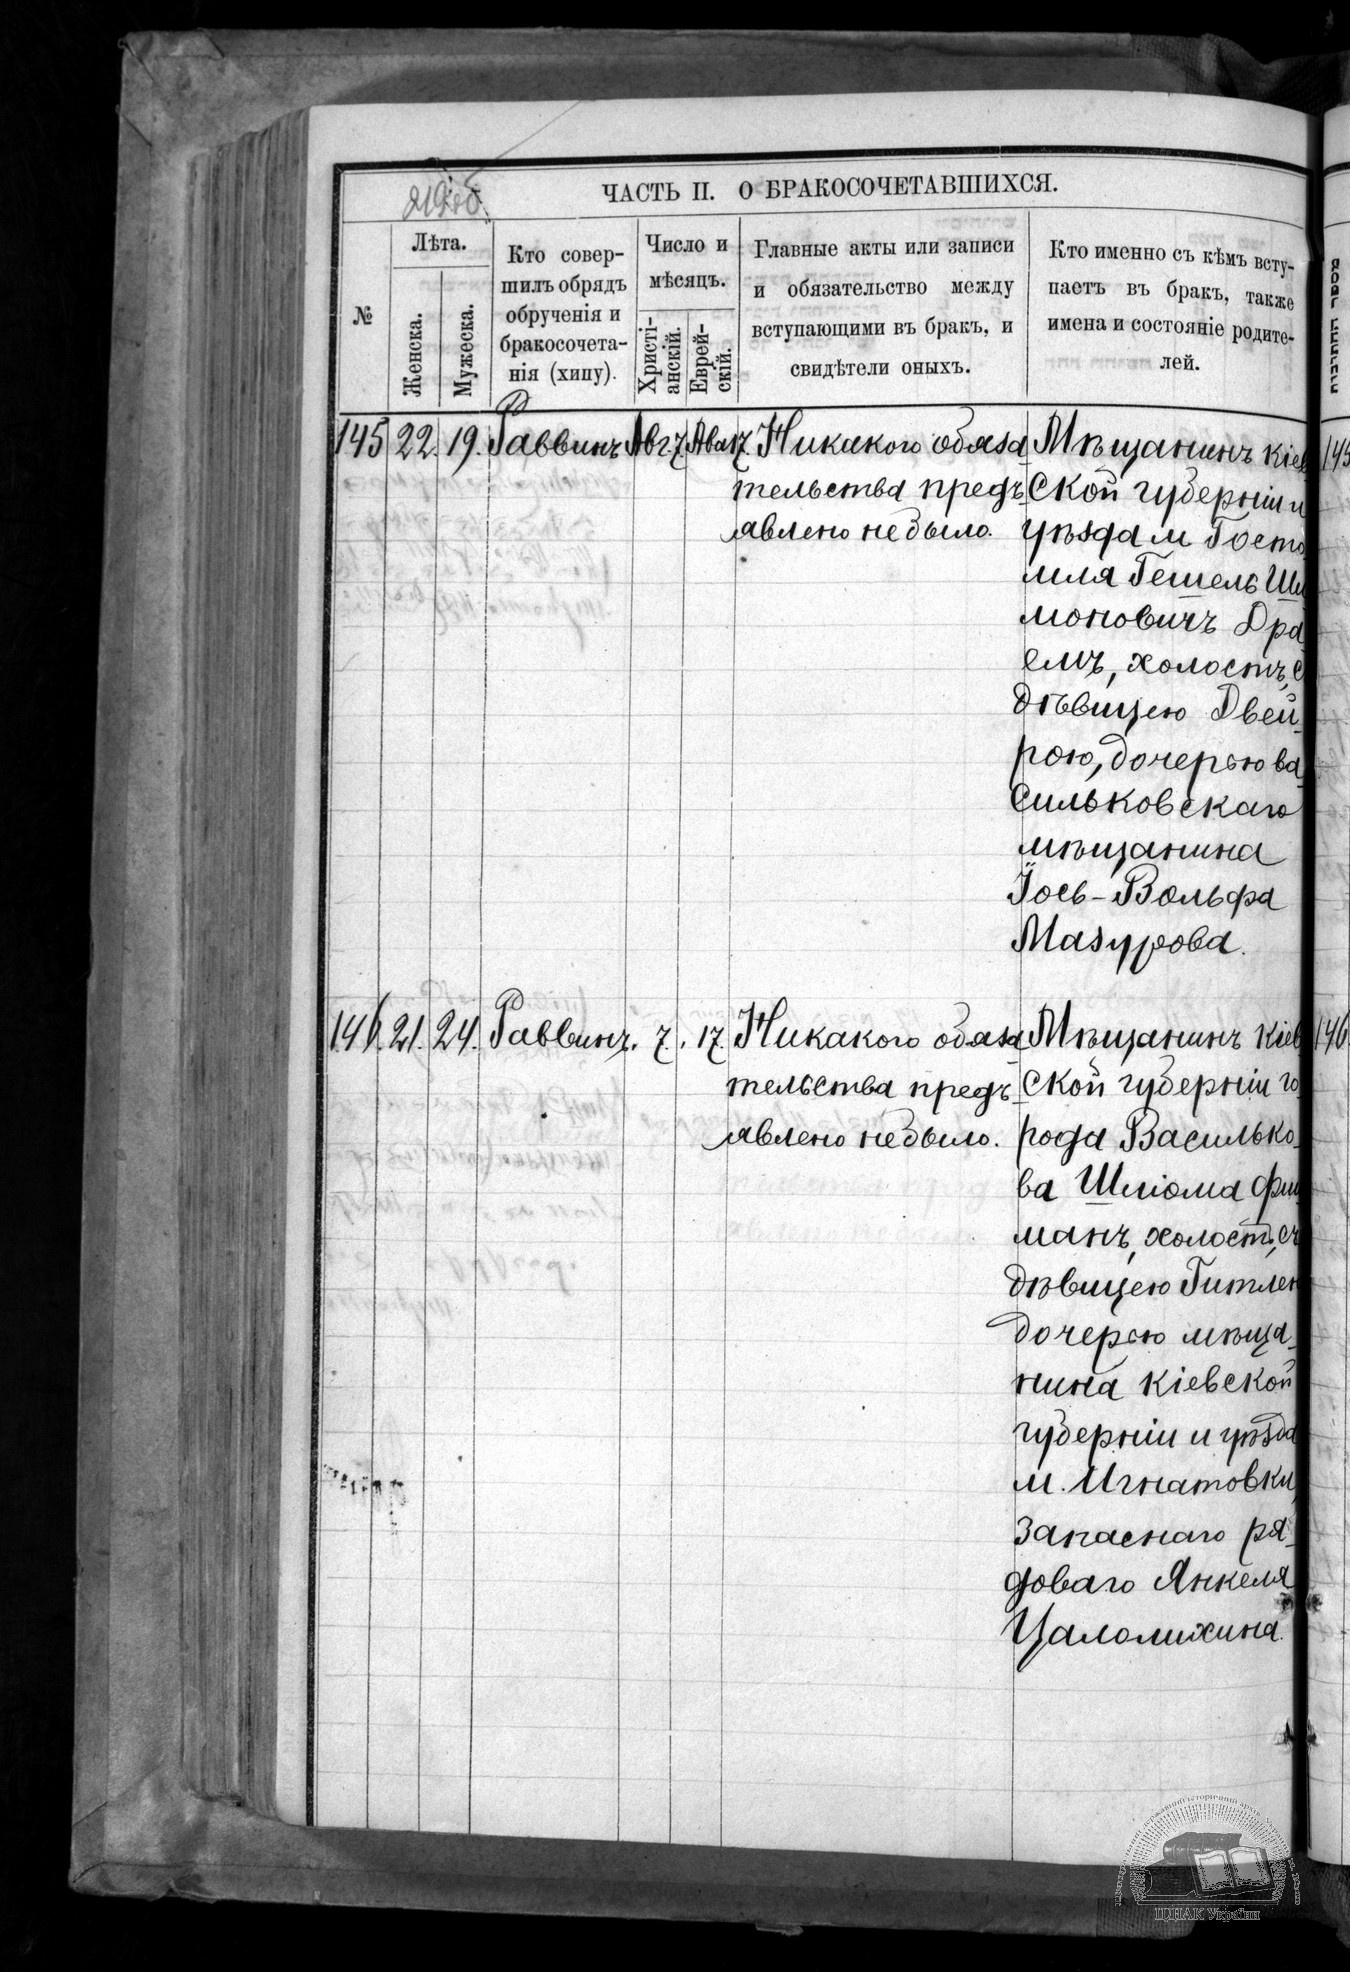 219об
ЧАСТЬ II. О БРАКОСОЧЕТАВШИХСЯ.
№
Лѣта.
Женска.
Мужеска.
Кто совер-
шилъ обрядъ
обрученія и
бракосочета-
нія (хипу).
Число и
мѣсяцъ.
Христі-
анскій.
Еврей-
скій.
Главные акты или записи
и обязательство между
вступающими въ бракъ, и
свидѣтели оныхъ.
Кто именно съ кѣмъ всту-
паетъ въ бракъ, также
имена и состояніе родите-
лей.
145 22. 19. Раввинъ Авг. 7 Ава 17. Никакого обяза
тельства предъ-
явлено не было.
Мѣщанинъ Кіев
ской губерніи и
уѣзда м Госто
мля Гешель Ши
моновичъ Дра
емъ, холостъ, с
дѣвицею Двей-
рою, дочерью ва
сильковскаго
мѣщанина
Йось-Вольфа
Мазурова.
145
146. 21. 24. Раввинъ. 7. 17. Никакого обяза
тельства предъ-
явлено не было.
Мѣщанинъ Кіев
ской губерніи го-
рода Василько-
ва Шліома Фиш
манъ, холостъ, съ
дѣвицею Гитлею
дочерью мѣща-
нина Кіевской
губерніи и уѣзда
м. Игнатовки,
запаснаго ря-
доваго Янкеля
Цаломихина.
146
ЦДІАК України